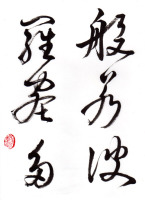 般若波
羅蜜多